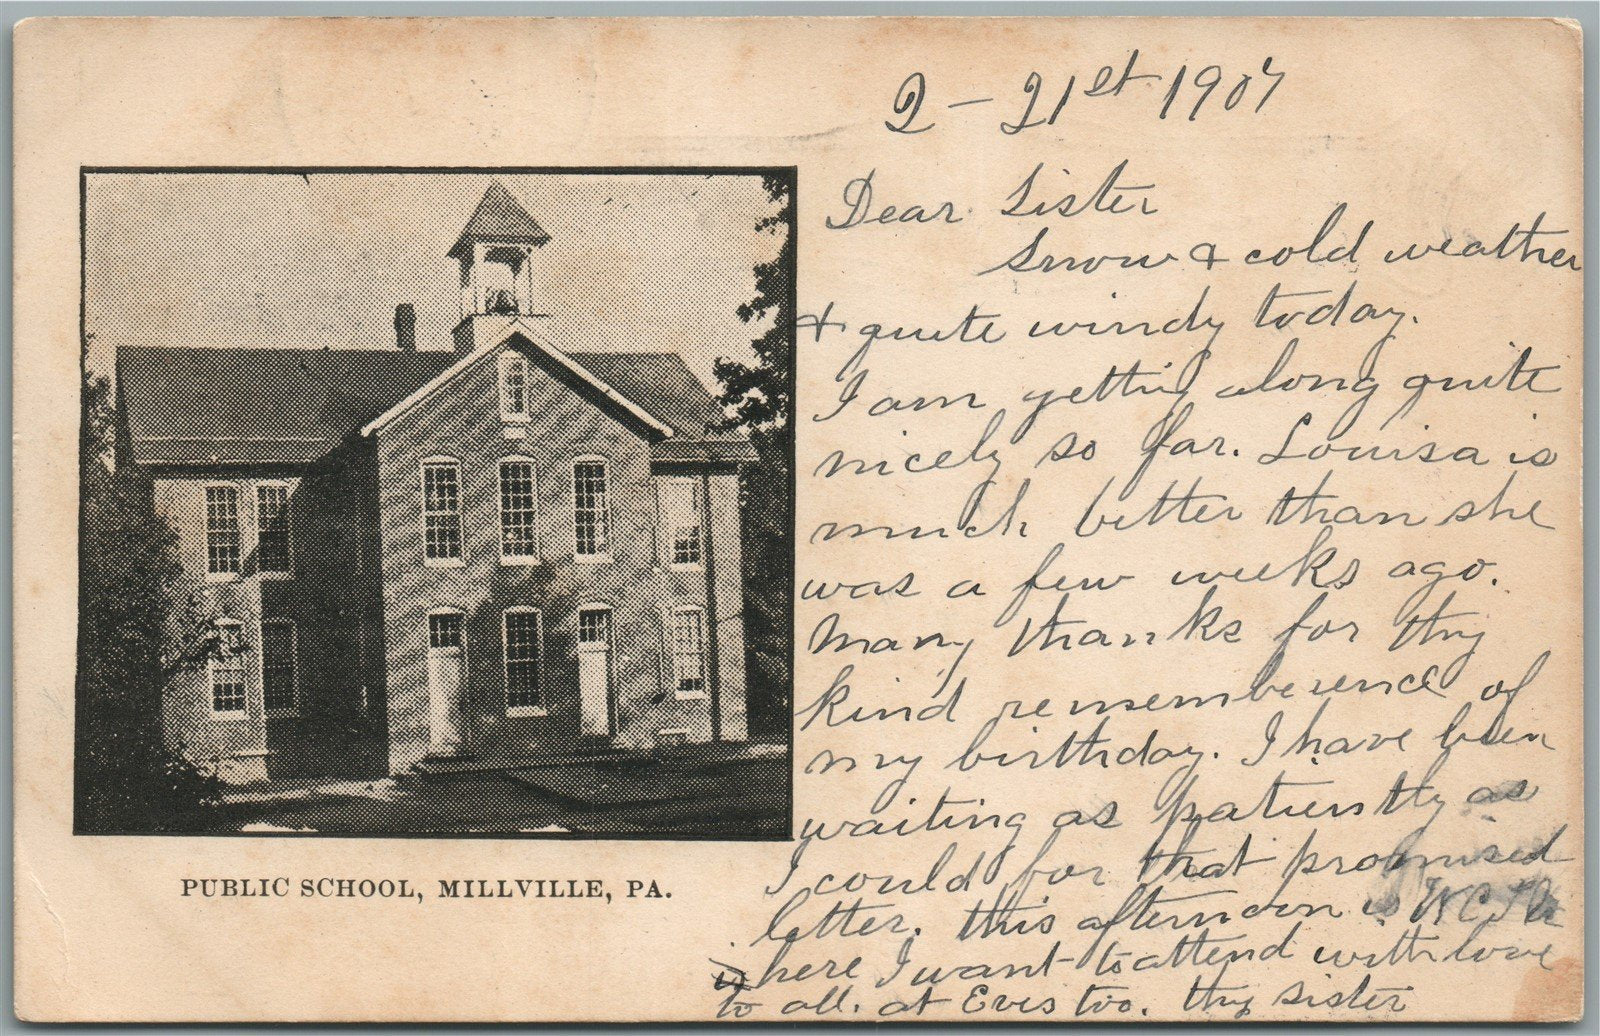 2 - 21st 1907
Dear Sister
Snow & cold weather
& quite windy today.
I am getting along quite
nicely so far. Louisa is
much better than she
was a few weeks ago.
Many thanks for thy
kind rememberence of
my birthday. I have been
waiting as patiently as
I could for that promised
letter. this afternoon is
here I want to attend with love
to all. at Eves too. thy sister
PUBLIC SCHOOL, MILLVILLE, PA.